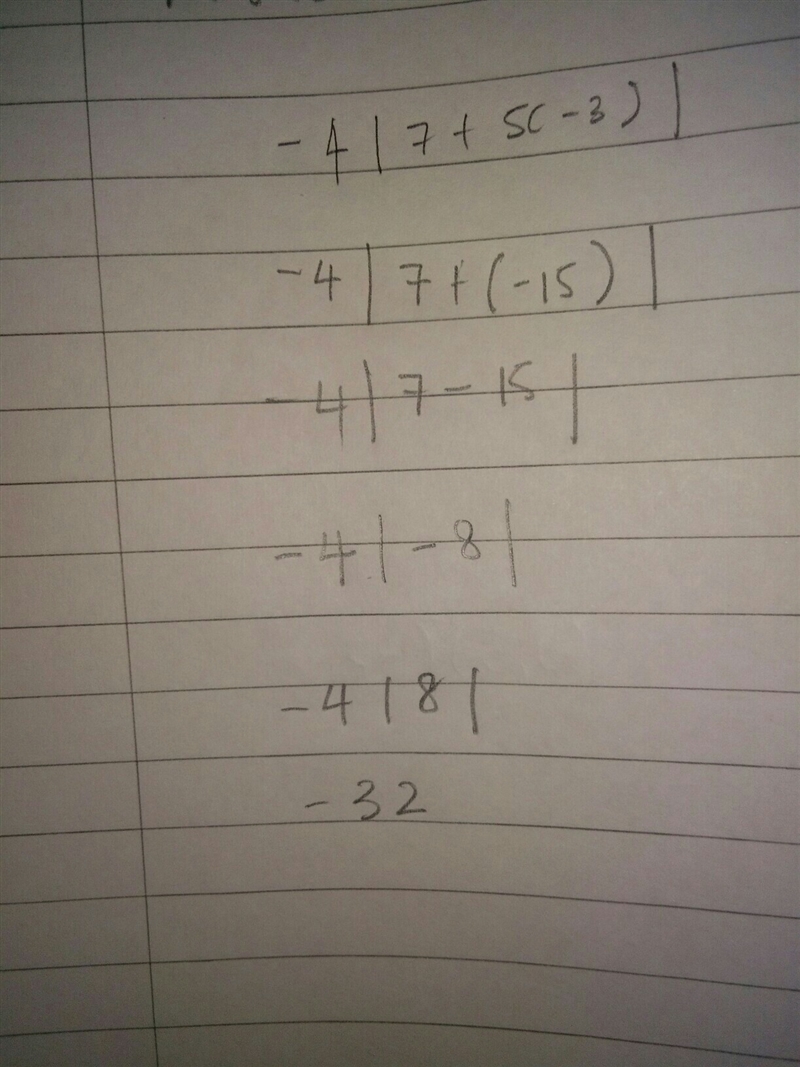 -4|7+5(-3)|
-4|7+(-15)|
-4|7-15|
-4|-8|
-4|8|
-32